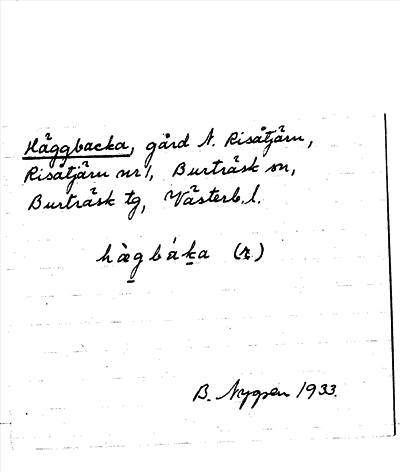 Häggbacka, gård N. Risåtjärn,
Risåtjärn nr 1, Burträsk sn,
Burträsk tg, Västerb. l.
hàg̲bák̲a (ɴ̲)
B. Nygren 1933.